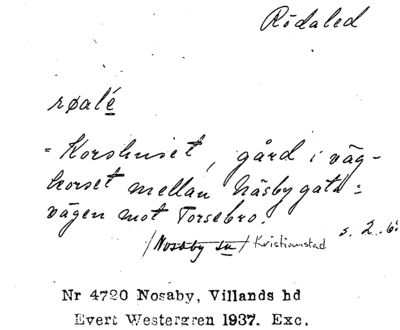 Rödaled
røalé
= Korshuset, gård i väg-
korset mellan Näsbygata =
vägen mot Torsebro.
/Nosaby sn/ Kristianstad s. 2.
Nr 4720 Nosaby, Villands hd
Evert Westergren 1937. Exc.